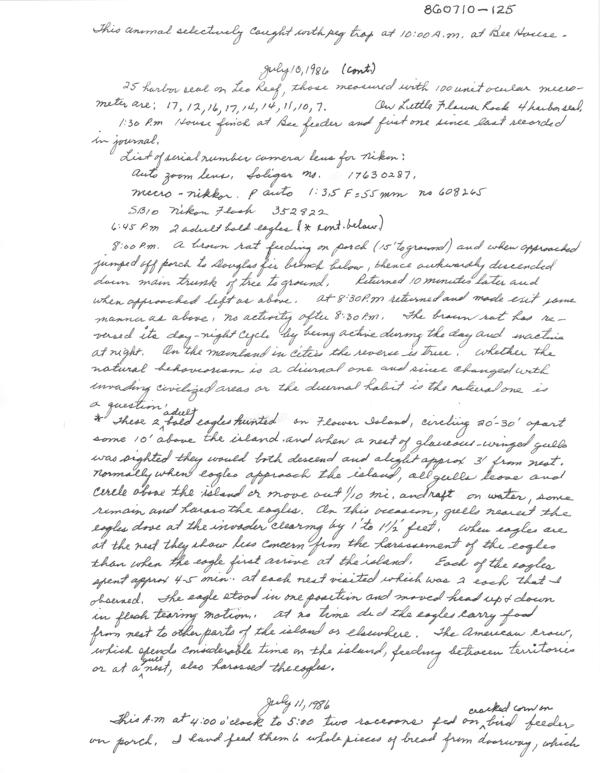 860710-125
This animal selectively caught with peg trap at 10:00 A.m. at Bee House -
July 10, 1986 (cont)
25 harbor seal on Leo Reef, those measured with 100 unit ocular micro-
meter are; 17, 12, 16, 17, 14, 14, 11, 10, 7. On Little Flower Rock 4 harbor seal.
1:30 P.m House finch at Bee feeder and first one since last recorded
in journal.
List of serial number camera lens for Nikon:
Auto zoom lens. Soligar no. 17630287.
micro-nikkor. P auto 1:3.5 F=55mm no 608265
SB10 Nikon Flash 352822
6:45 P.m 2 adult bald eagles (* cont. below)
8:00 P.m. A brown rat feeding on porch (15' to ground) and when approached
jumped off porch to Douglas fir branch below, thence awkwardly descended
down main trunk of tree to ground. Returned 10 minutes later and
when approached left as above. At 8:30 P.m returned and made exit same
manner as above, no activity after 8:30 P.m. The brown rat has re-
versed its day-night cycle by being active during the day and inactive
at night. On the mainland in cities the reverse is true. Whether the
natural behaviorism is a diurnal one and since changed with
invading civilized areas or the diurnal habit is the natural one is
a question.
* These 2 adult bald eagles hunted on Flower Island, circling 20'-30' apart
some 10' above the island and when a nest of glaucous-winged gulls
was sighted they would both descend and alight approx 3' from nest.
Normally when eagles approach the island, all gulls leave and
circle above the island or move out 1/10 mi. and raft on water, some
remain and harass the eagles. On this occasion, gulls nearest the
eagles dove at the invader clearing by 1' to 1 1/2 feet. When eagles are
at the nest they show less concern from the harassement of the eagles
than when the eagle first arrive at the island. Each of the eagles
spent approx 4-5 min. at each nest visited which was 2 each that I
observed. The eagle stood in one position and moved head up & down
in flesh tearing motion. At no time did the eagles carry food
from nest to other parts of the island or elsewhere. The American crow,
which spends considerable time on the island, feeding between territories
or at a gull nest, also harassed the eagles.
July 11, 1986
This A.m at 4:00 o'clock to 5:00 two raccoons fed on cracked corn on bird feeder
on porch. I hand feed them 6 whole pieces of bread from doorway, which